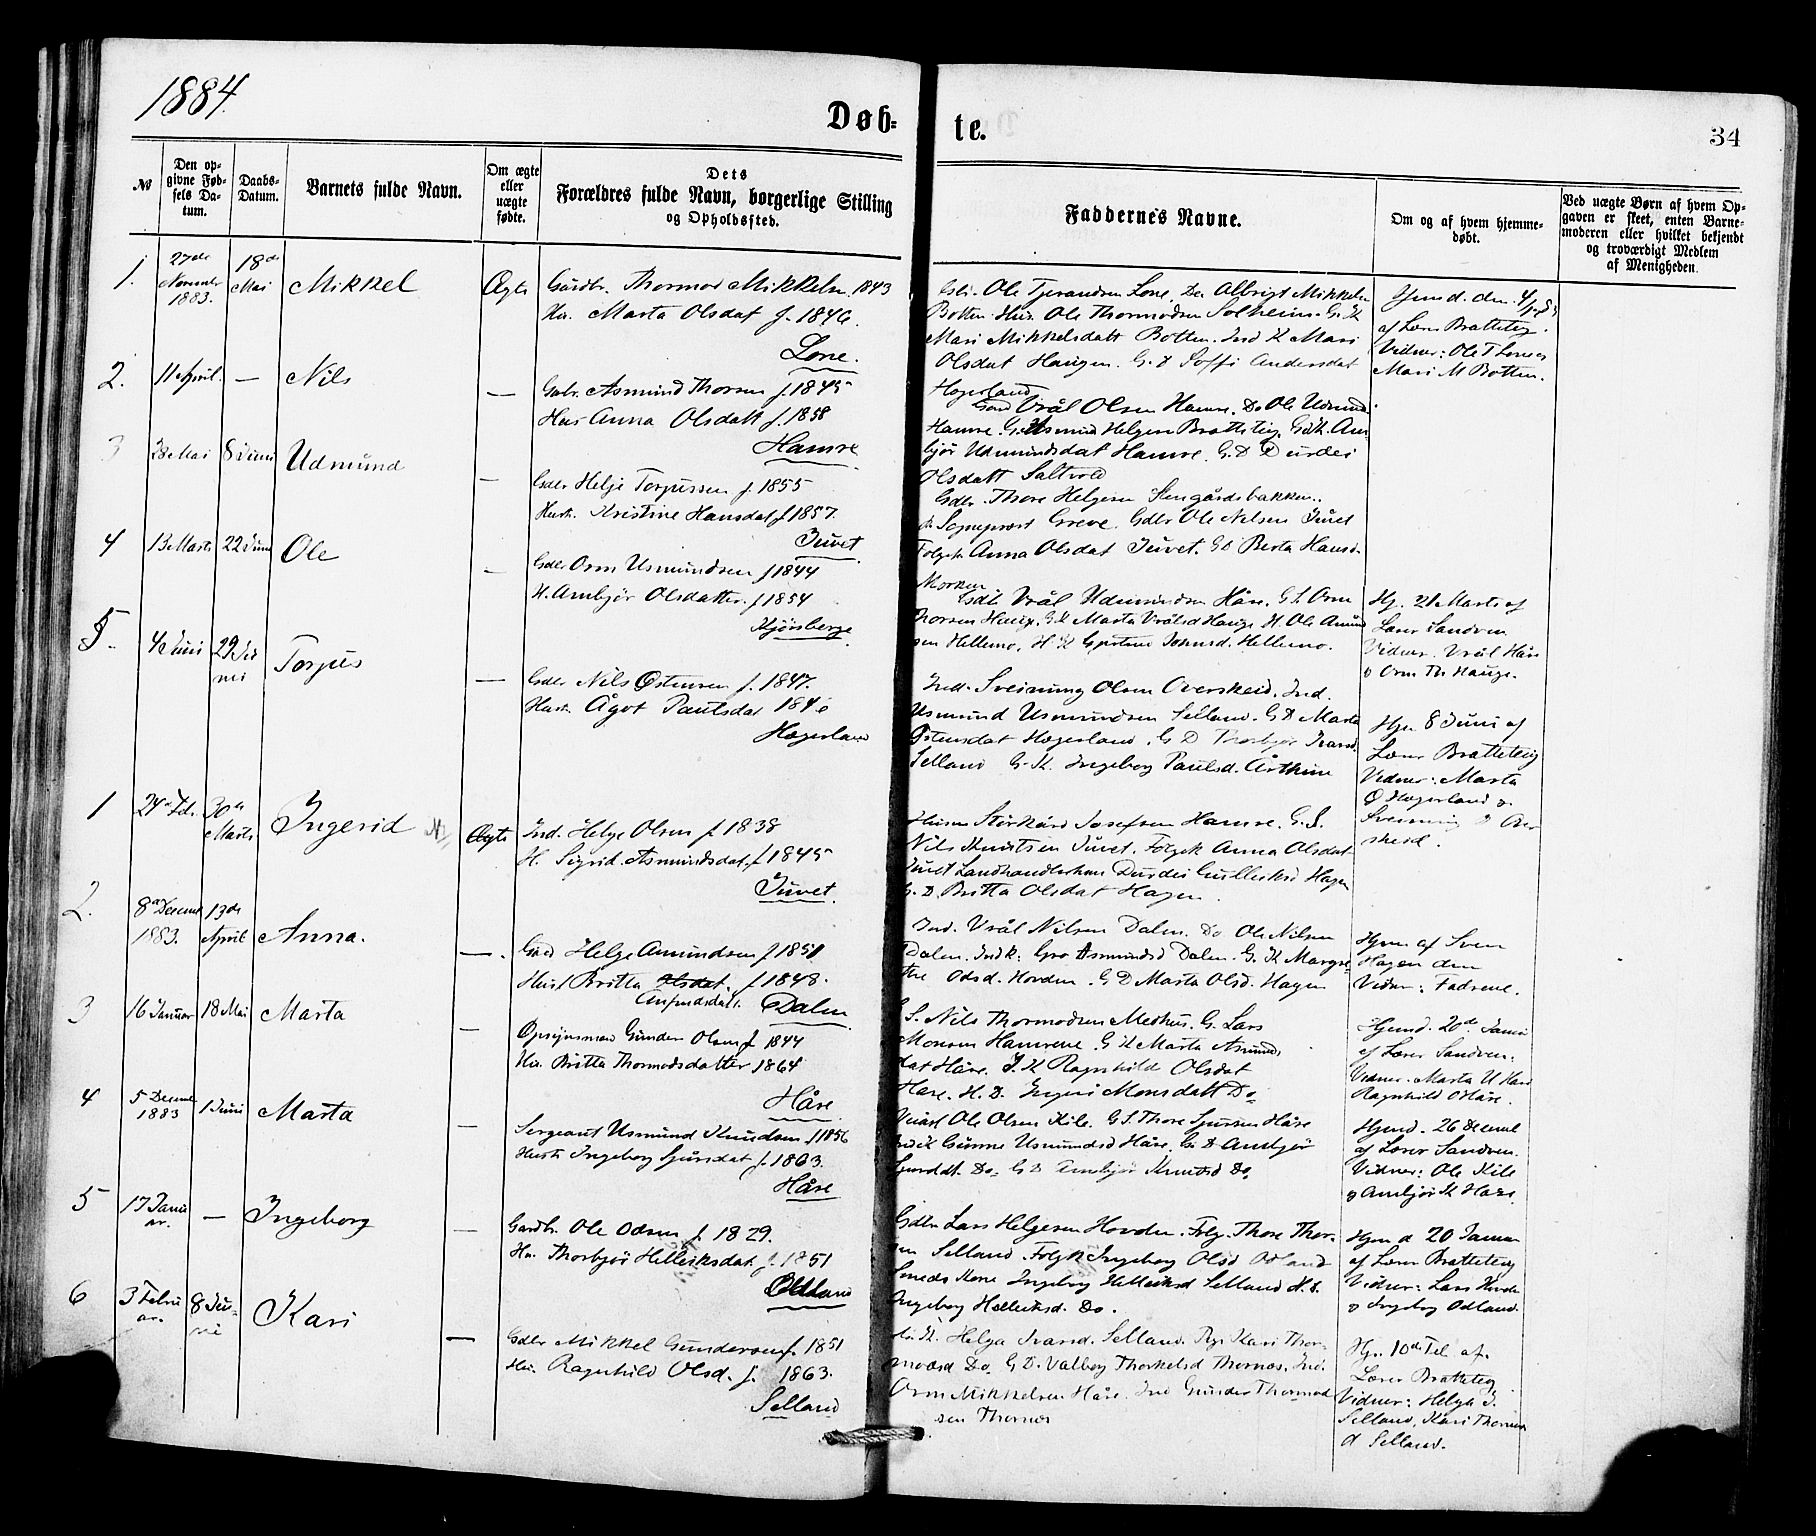 1884.
Døb=
te.
34
№
Den op-
givne Fød-
sels Da-
tum.
Daabs-
Datum.
Barnets fulde Navn.
Om ægte
eller
uægte
fødte.
Dets
Forældres fulde Navn, borgerlige Stilling
og Opholdssted.
Faddernes Navne.
Om og af hvem hjemme-
døbt.
Ved uægte Børn af hvem Op-
gaven er skeet, enten Barne-
moderen eller hvilket bekjendt
og troværdigt Medlem
af Menigheden.
1. 27de November 1883. 18de Mai Mikkel Ægte
Gårdbr. Thormod Mikkelsn. 1843
Hu. Marta Olsdat f. 1846.
Lone.
Ole Tjerandsen Lone. Do Albrigt Mikkelsn
Botten. Hus. Ole Thormodsen Solheim. G. K
Mari Mikkelsdatt Botten. Ind K Mari
Olsdat Haugen. G. D Soffi Andersdat
Hogerland
Hjemd. den
af Lærer Bratteteig.
Vidner: Ole T Lone og
Mari M Botten.
2. 11 April. — Nils —
Gdbr. Asmund Thorsen f. 1845
Hus Anna Olsdatt f. 1858
Hamre
Vrål Olsen Hamre. Do Ole Udmund
Hamre. G. Asmund Helgesen Bratteteig. Gdk. Am-
bjør Udmundsdat Hamre. G. D Durdei
Olsdatt Saltvold
3 28 Mai 8 Juni Udmund —
Gdbr Helje Torjussen f. 1855
Hustr. Kristine Hansdat f 1857.
Juvet
Gdbr. Thore Helgesen Stengårdsbakken.
Sogneprest Greve. Gdbr Ole Nilsen Juvet
Folgek. Anna Olsdat Juvet. GD Berta Hansd.
Morken
4 13 Marts 22 Juni Ole —
Gdbr Orm Usmundsen f 1844
H. Ambjør Olsdatter. f 1854
Kjørsberge
Gdb Vrål Udmundsen Håre. G. S. Orm
Thorsen Hauge. G K Marta Vrålsd Hauge H. Ole Amund
sen Hellemo. H K Gjertine Johnsd. Hellemo.
Hj. 21 Marts af
Lærer Sandven
Vidner. Vrål Håre
o Orm Th Hauge.
5. 4 Juni 29 Ju
ni Torjus —
Gdbr Nils Østensen f. 1847.
Hustr. Ågot Paulsdat 184
Hogerland
Ind. Sveinung Olsen Overskeid. Ind.
Usmund Usmundsen Selland. G D Marta
Østensdat Hogerland. G D Thorbjør Ivarsd
Selland G. K. Ingeborg Paulsd. Årthun
Hjm 8 Juni af
Lærer Bratteteig
Vidner: Marta
Ø Hogerland o.
Sveinung O Over
skeid.
1 24 Feb. 30te
Marts Ingerid Ægte
Ind. Helge Olsen f 1838
H. Sigrid. Asmundsdat. f 1845
Juvet
Husm Storkård Josefsen Hamre. G. S.
Nils Knutsen Juvet. Folgek Anna Olsdat
Juvet Landhandlerkone Durdei Gulleiksd Hagen
G. D Britta Olsdat Hagen.
2. 8de Decemb
1883. 13de
April Anna. —
Gård Helge Amundsen f 1851
Hust Britta Olsdat. f 1848.
Anfindsdat. Dalen
Ind. Vrål Nilsen Dalen. Do Ole Nilsen
Dalen. Ind k: Gro Asmundsd Dalen. G. K Margre-
the Odsd. Hovden. G D Marta Olsd. Hagen
Hjem af Sven
Hagen den
Vidner: Fadrene.
3 16 Januar 18 Mai Marta —
Opsynsmand Gunder Olsen f 1844
Hu. Britta Thormodsdatter 1864
Håre
S. Nils Thormodsen Medhus. G. Lars
Monsen Hamrene. G K Marta Amunds
dat Håre. I. K Ragnhild Olsdat
Håre. H. D. Ingeri Monsdatt Do
Hjemd. 20de Januar
af Lærer Sandven.
Vidner. Marta U Håre
Ragnhild O Håre.
4 5 Decemb
1883 1 Juni Marta —
Sergeant Usmund Knudsen f 1856
Hustr Ingeborg Sjursdat f. 1863.
Håre
Ole Olsen Kile. G. S. Thore Sjursen Håre
Ind K Gunne Usmundsd Håre. G. D Ambjør
Sjursdt. Do. G D Ambjør Knutsd Do.
Hjemd. 26 Decemb
af Lærer Sandven.
Vidner: Ole Kile
o Ambjør K Håre
5 17 Janu
ar. — Ingeborg —
Gardbr. Ole Odsen f. 1829.
Hu. Thorbjør Helleiksdat f. 1851
Odland
Gdbr Lars Helgesen Hovden. Folg. Thore Thor-
sen Selland. Folgk Ingeborg Olsd Odland
Smeds Kone Ingeborg Helleiksd Selland H. D.
Ingeborg Helleiksd. Do.
Hjem d 20 Januar
af Lærer Bratteteig
Vidner: Lars Hovden
o Ingeborg Odland.
6 3 Febru
ar. 8 Ju-
ni Kari —
Gdbr Mikkel Gundersen f. 1851
Hu. Ragnhild Olsd. f. 1863.
Selland
K. Helga Ivarsd. Selland. Kari Thor-
modsd Do. G D. Valborg Thorkelsd Thornes. Ind.
Orm Mikkelsen Håre. Ind Gunder Thormod
sen Thornes
Hj. 10de Feb. af
Lærer Bratteteig
Vidner: Helga I.
Selland, Kari Thormo
d Selland.